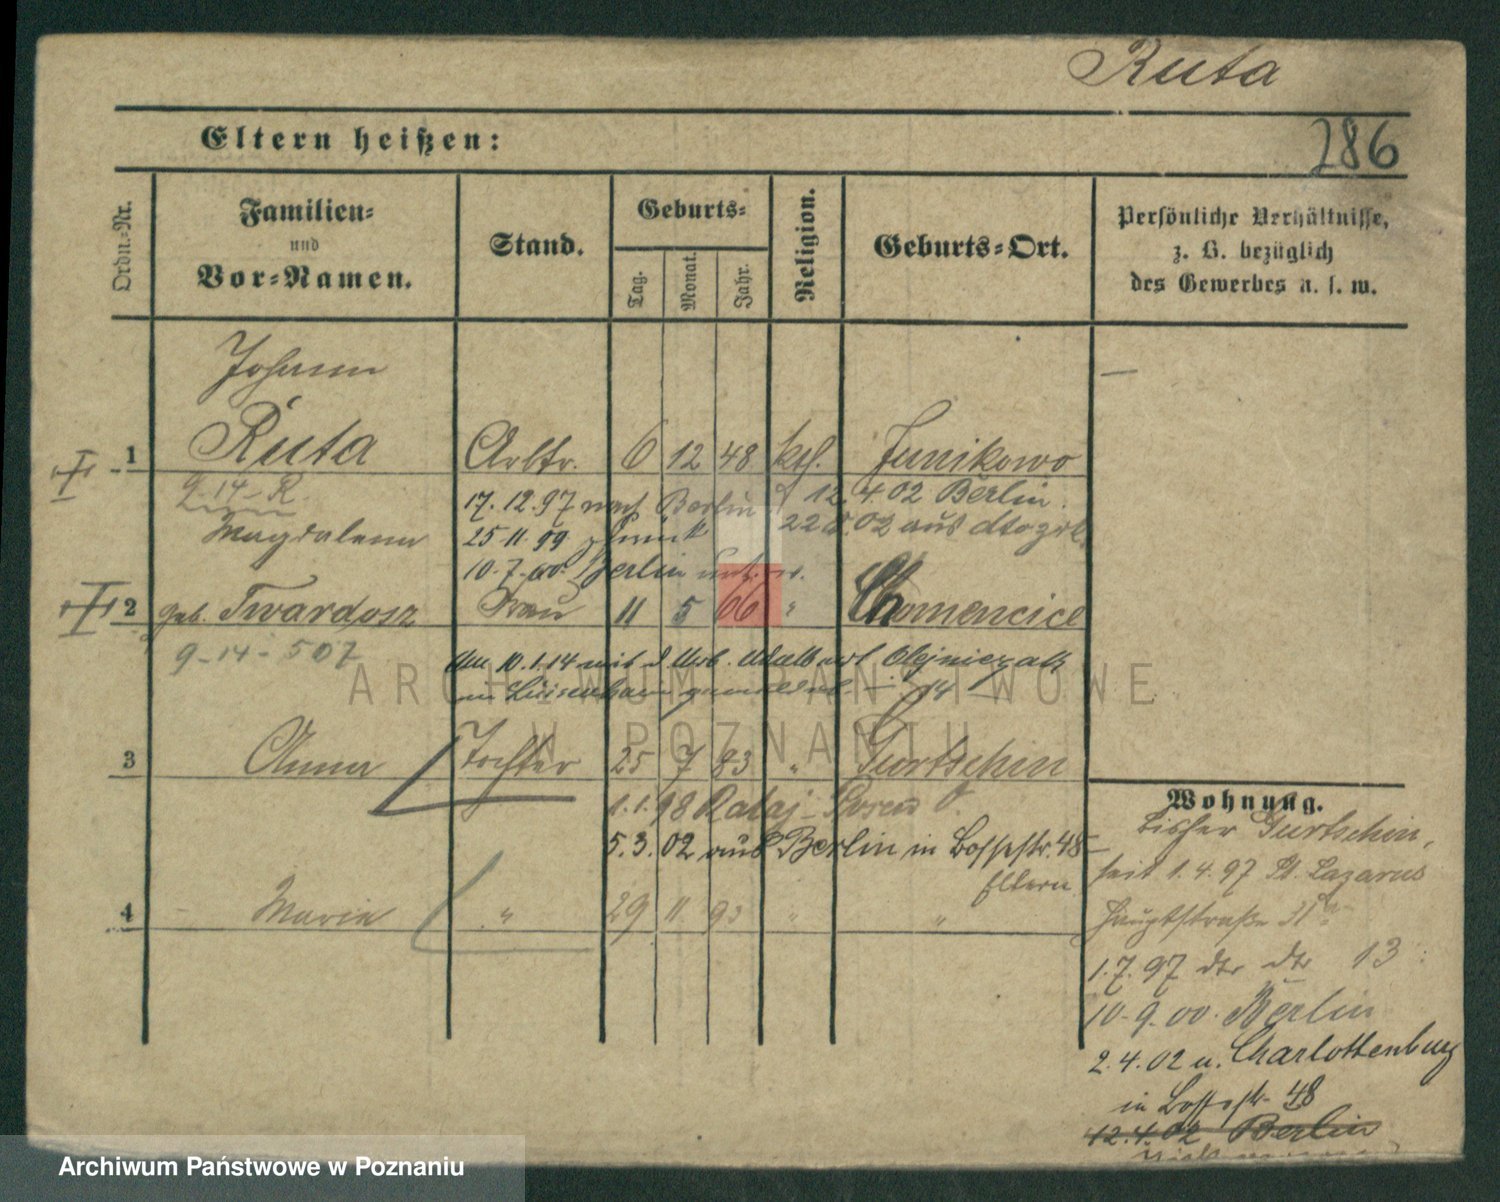 Ruta
286
Eltern heißen:
Ordn.-Nr.
Familien-
und
Vor-Namen.
Stand.
Geburts-
Tag.
Monat.
Jahr.
Religion.
Geburts-Ort.
Persönliche Verhältnisse,
z. B. bezüglich
des Gewerbes u. s. w.
Johann
1 Ruta Arbtr. 6 12 48 kth. Junikowo
9-14-R.
17.12.97 nach Berlin 12.4.02 Berlin.
Magdalena
25.11.99 zurück 02 aus
10.7.00. Berlin
2 geb. Twardosz Frau 11 5 66 " Chomencice
9-14-507
10.1.14 mit d. Arb. Olejniczak
in 14
3 Anna Tochter 25 7 83 " Gurtschin
1.1.98 Rataj-Posen
5.3.02 aus Berlin in Bossestr. 48
Eltern
4 Maria " 29 11 93 " "
Wohnung.
Bisher Gurtschin,
seit 1.4.97 St. Lazarus
Hauptstraße 31
1.7.97 dto dto 13
10.9.00. Berlin
2.4.02 u. Charlottenburg
in Bossestr. 48
12.4.02 Berlin
ARCHIWUM PAŃSTWOWE
W POZNANIU
Archiwum Państwowe w Poznaniu